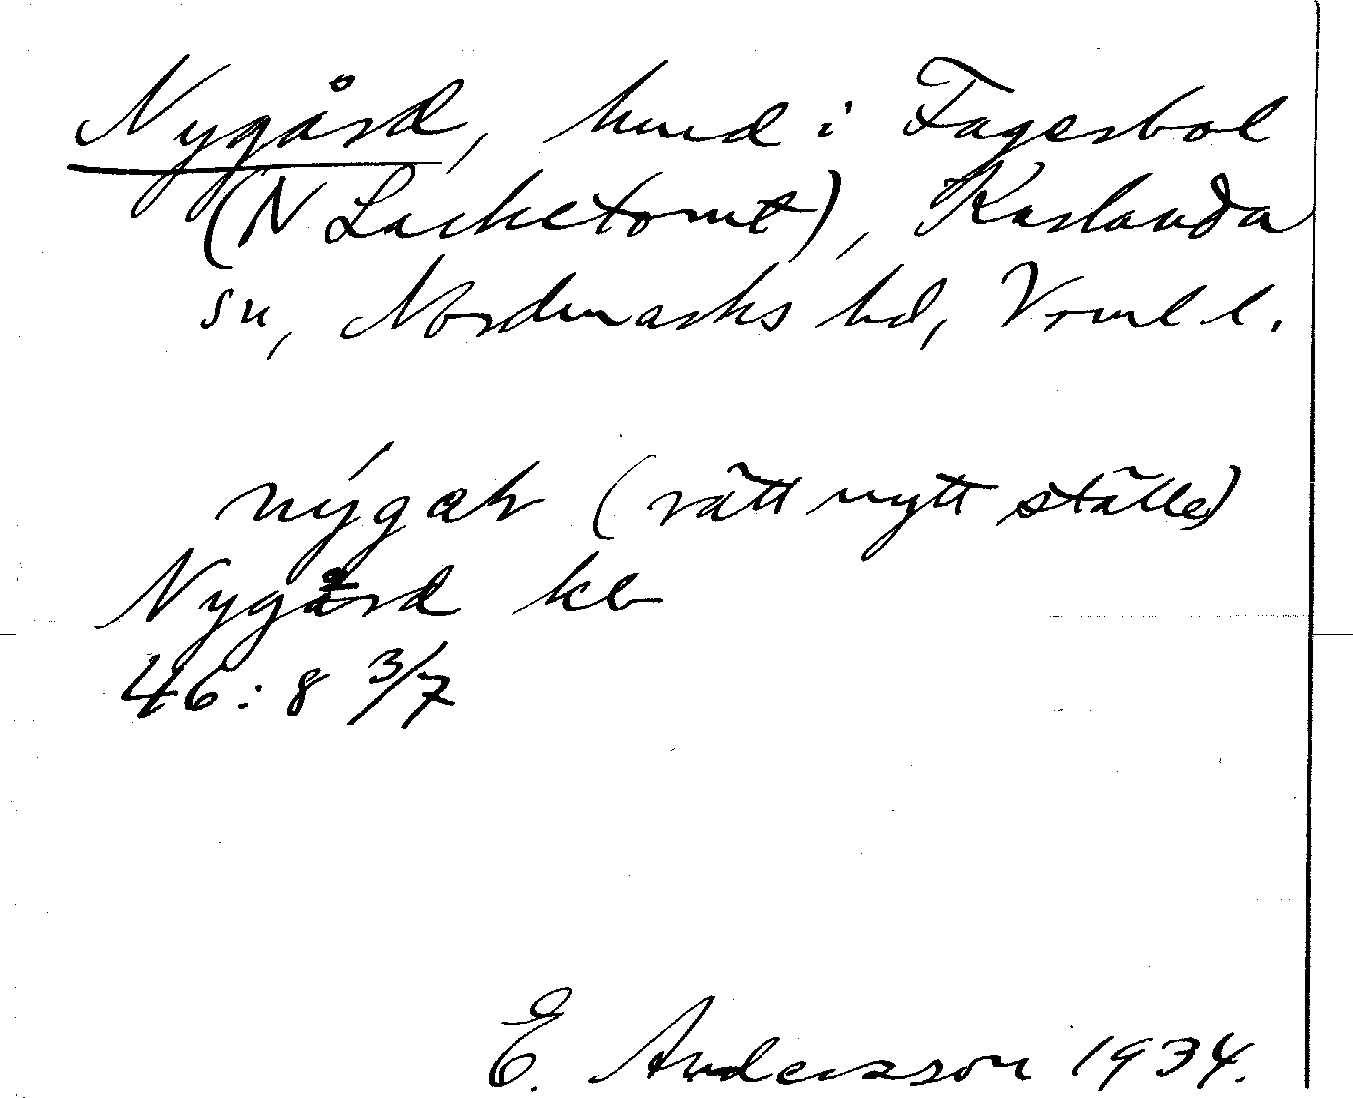 Nygård, hmd i Fagerbol
(N Lacketomt), Karlanda
sn, Nordmarks hd, Vrml l.
nýgaɫr (rätt nytt ställe)
Nygård kb
46:8 3/7
E. Andersson 1934.